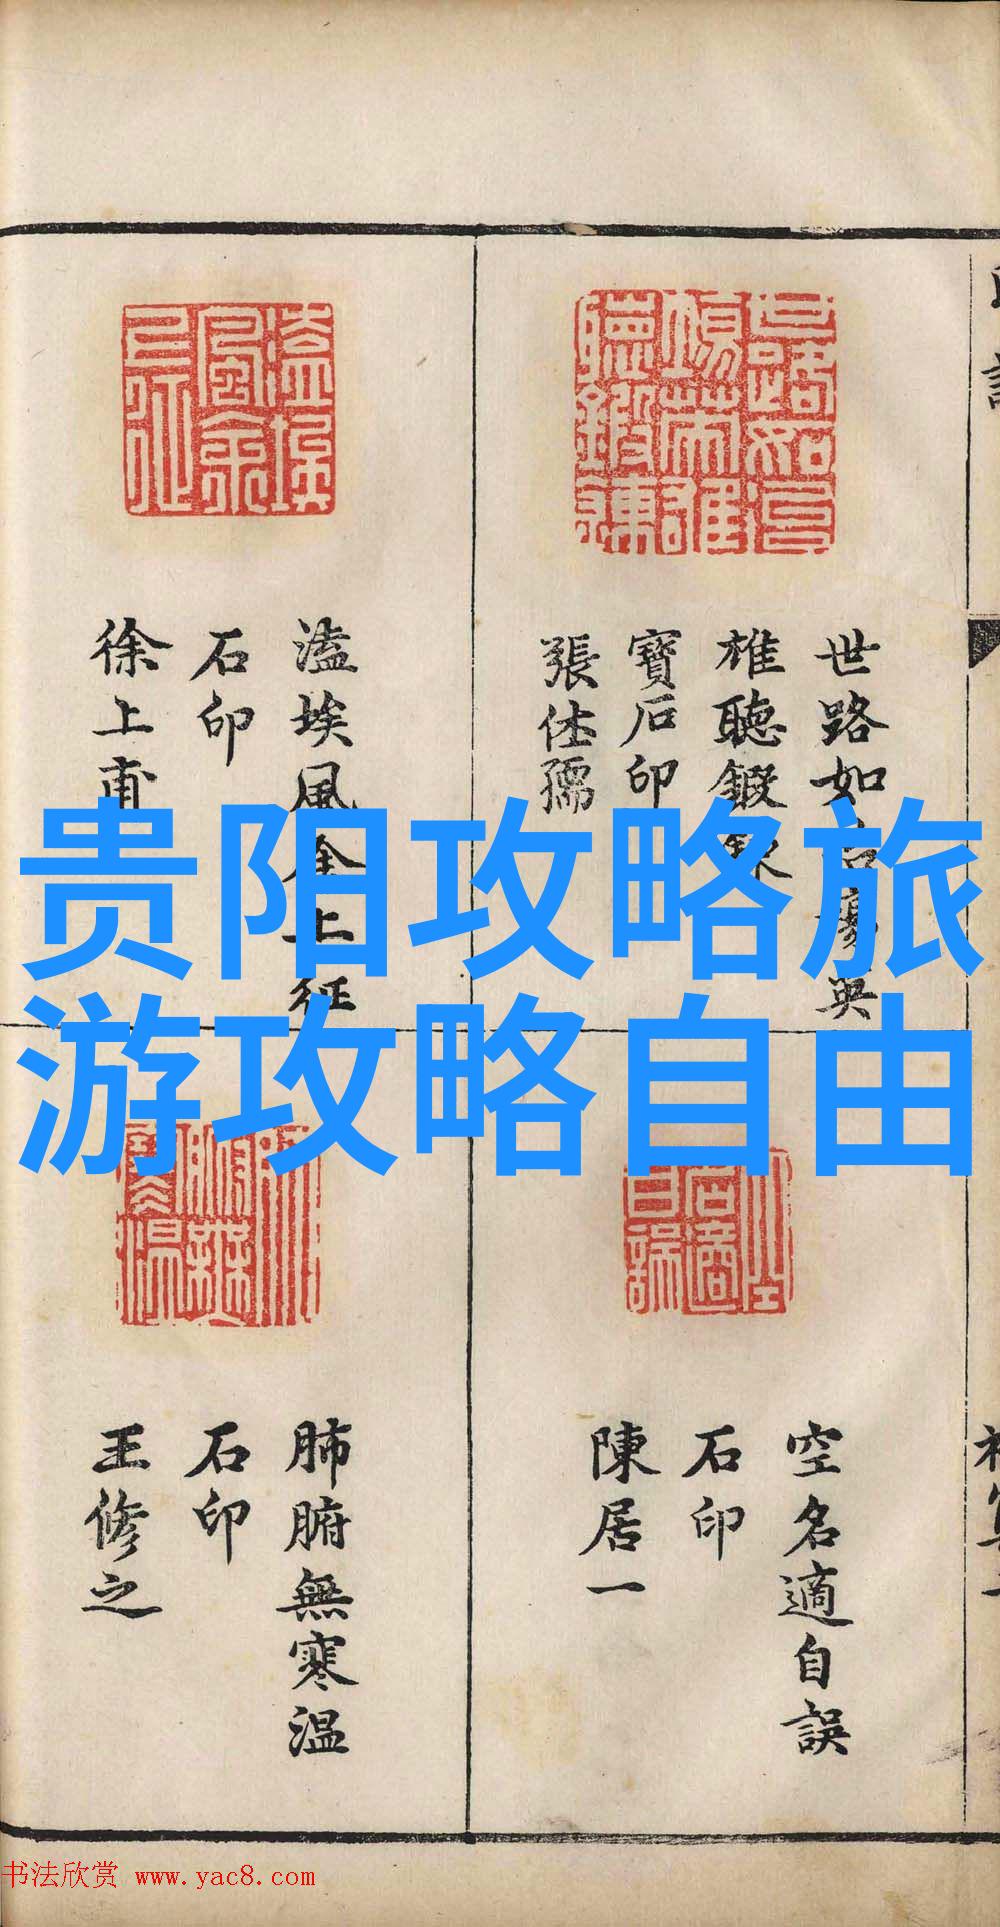 世路如石𫝆與
椎聽鍛鍊
寶石印
張仕孺
溘埃風余上征
石印
徐上甫
贵阳攻略旅
游攻略自由
空名適自誤
石印
陳居一
肺腑無寒温
石印
王修之
书法欣赏 www.yac8.com